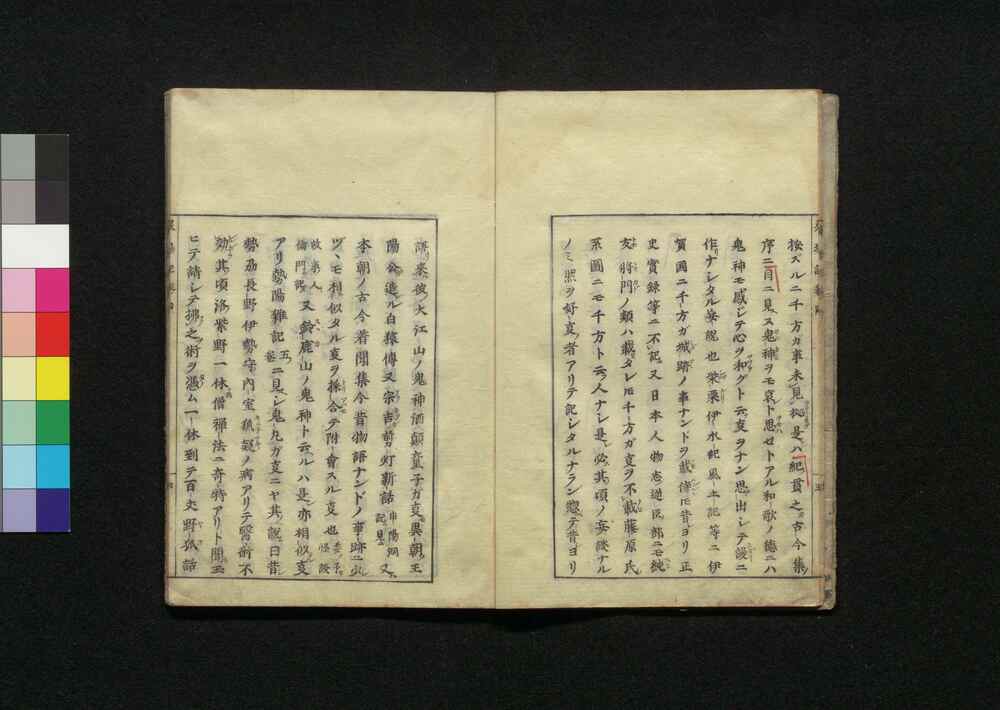 按スルニ千方ガ事未見處是ハ紀貫之古今集
序ニ目ニ見ヌ鬼神ヲモ哀ト思セトアル和歌ノ德ニハ
鬼神モ感シテ心ヲ和グト云夏ヲナン思出シテ謾ニ
作リナシタル妄説也 伊水記風土記等ニ伊
賀國ニ千方ガ城跡ノ事ナンドヲ載侍モ昔ヨリ正
史實録等ニ不記又日本人物志逆臣部ニモ純
友將門ノ類ハ載タレ𪜈千方ガ夏ヲ不載藤原氏
系圖ニモ千方ト云人ナシ是必其頃ノ妄談ナル
ノミ 照ヲ好夏者アリテ記シタルナラン惣テ昔ヨリ
彼大江山ノ鬼神酒顛童子ガ夏異朝王
陽公造ル白猿傳又宗吉剪灯新話申陽洞記見又
本朝ノ古今著聞集今昔物語ナンドノ事跡ニ少
ツヽモ相似タル夏ヲ採合テ附會スル夏也怪談
故東人 門語又鈴鹿山ノ鬼神ト云ルハ是亦相似夏
アリ勢陽雜記五卷ニ見シ鬼九ガ夏ニヤ其説曰昔
勢刕長野伊勢守内室狐疑ノ病アリテ醫術不
効其頃洛紫野一休僧禪法ニ奇特アリト聞玉
ヒテ請シテ拂之術ヲ憑ム一休到テ百丈野狐話